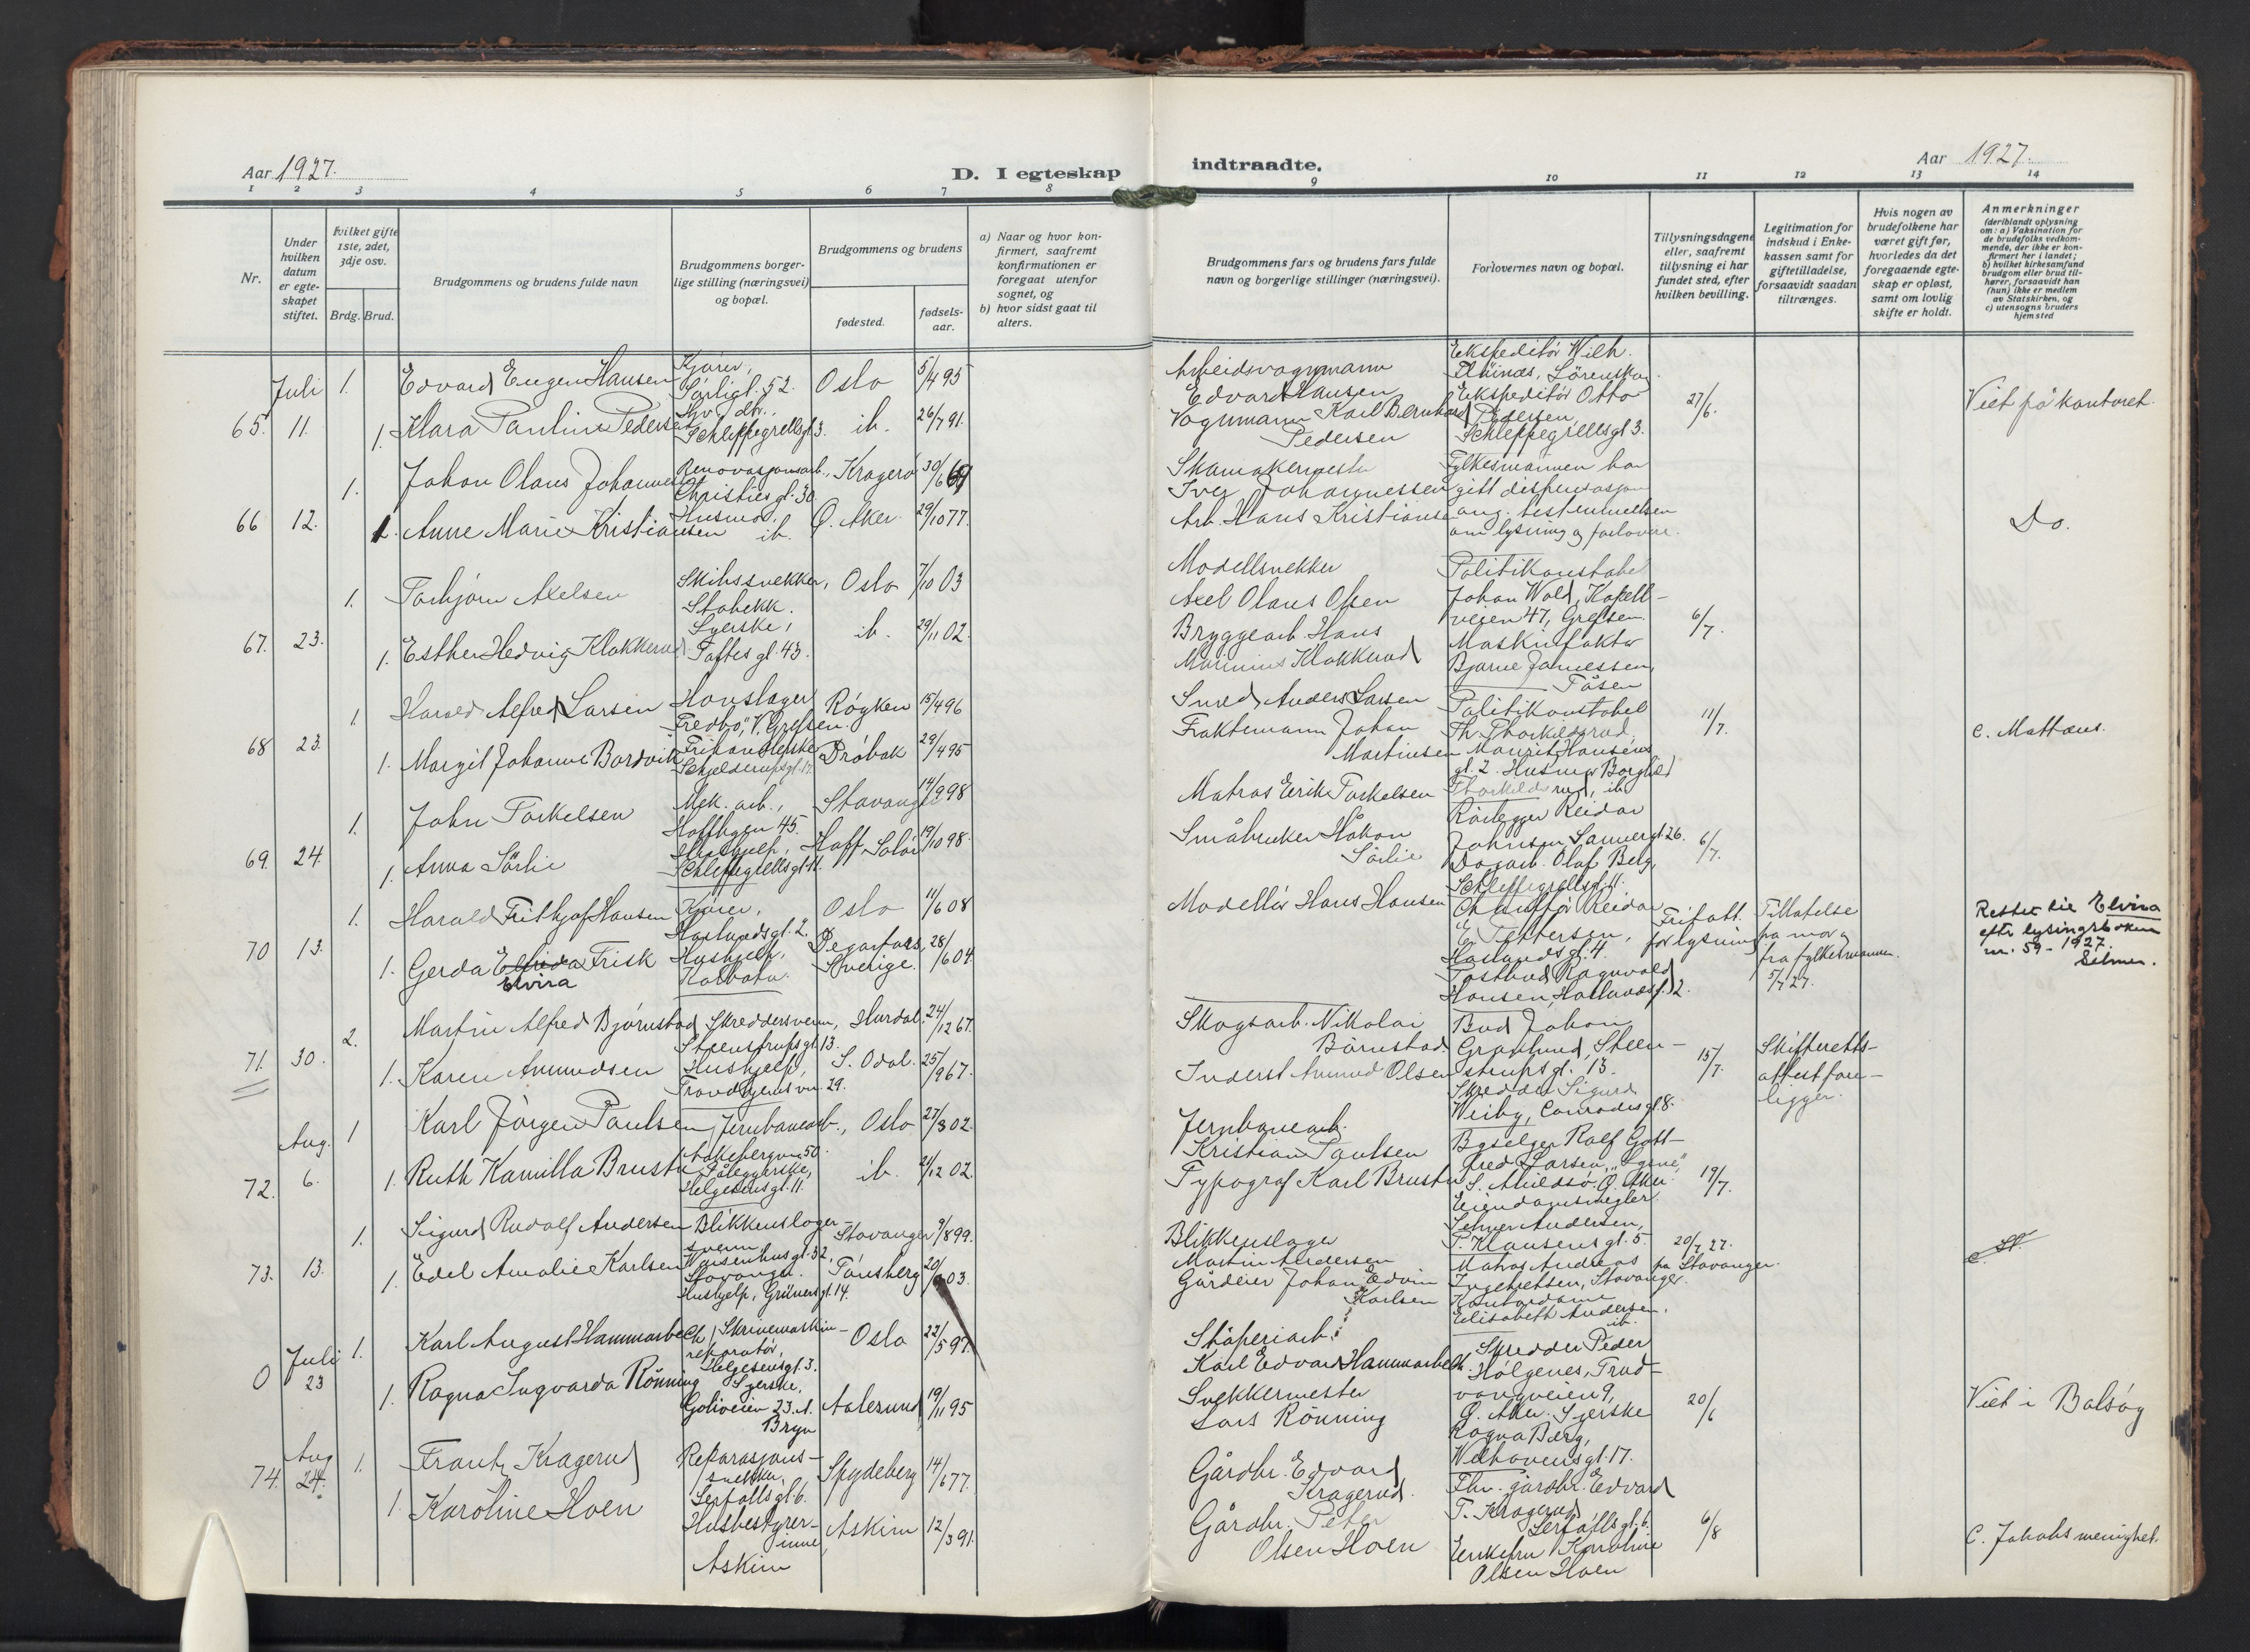 Aar 1927.
D. I egteskap
1 2 3 4 5 6 7 8
Nr.
Under hvilken datum er egteskapet stiftet.
Hvilket gifte 1ste, 2det, 3dje osv.
Brdg. Brud.
Brudgommens og brudens fulde navn
Brudgommens borgerlige stilling (næringsvei) og bopæl.
Brudgommens og brudens
fødested.
fødselsaar.
a) Naar og hvor konfirmert, saafremt konfirmationen er foregaat utenfor sognet, og
b) hvor sidst gaat til alters.
Juli 1. Edvard Eugen Hansen Kjører, Oslo 5/4 95
Sørligt. 52.
65. 11. 1. Klara Pauline Pedersen Syv. dtr., ib. 26/7 91.
Schleppegrellsgt 3.
1. Johan Olaus Johannessen Renovasjonsarb., Kragerø 30/6 69
Christies gt. 30
66 12. 1. Anne Marie Kristiansen Husmor, ib. Ø. Aker. 29/10 77.
1. Torbjørn Axelsen Skibssnekker, Oslo 7/10 03
Stabekk.
67. 23. 1. Esther Hedvig Klokkerud Syerske, ib. 29/11 02.
Toftes gt. 43.
1. Harald Alfred Larsen Hovslager Røyken 15/4 96
"Fredbo", V. Grefsen.
68 23. 1. Margit Johanne Bordvik Drøbak 29/4 95
Schjelderupsgt. 17
1. John Torkelsen Mek. arb., Stavanger 14/9 98
Hoffhgen 45.
69. 24. 1. Anna Sörlie Hushjelp, Hoff Solør 19/10 98.
Schleppegrellsgt 11.
1. Harald Frithjof Hansen Kjører, Oslo 11/6 08
Haslundsgt. 2.
70 13. 1. Gerda Elfrida Frisk Hushjelp, Degerfors 28/6 04
Elvira Kolbotn. Sverige.
2. Martin Alfred Bjørnstad Skreddersvenn, Hurdal. 24/12 67.
Steenstrupsgt. 13.
71. 30. 1. Karen Amundsen Hushjelp, S. Odal. 25/9 67.
Trondhjemsvn. 29.
1 Karl Jörgen Paulsen Jernbanearb., Oslo 27/3 02.
Aug. Aakebergvn 50.
72. 6. 1. Ruth Kamilla Brustu Påleggerske, ib. 21/12 02.
Helgesensgt. 11.
1. Sigurd Rudolf Andersen Blikkenslagersvenn Stavanger 9/8 99.
Waisenhusgt. 32, Stavanger.
73. 13. 1. Edel Amalie Karlsen Hushjelp, Grünersgt. 14. Tønsberg 20/9 03.
Juli 1. Karl August Hammarbeck Skrivemaskinreparatør, Oslo 22/5 97.
Helgesensgt. 3.
0 23 1. Ragna Ingvarda Rönning Syerske, Aalesund 19/11 95
Goliveien 23. A. Bryn
Aug 1. Frantz Kragerud Reparasjonssnekker, Spydeberg 14/6 77.
74. 24. Seifallsgt. 6.
1. Karoline Hoen Husbestyrerinne, Askim 12/3 91.
Askim
indtraadte.
Aar 1927.
9 10 11 12 13 14
Brudgommens fars og brudens fars fulde navn og borgerlige stillinger (næringsvei).
Forlovernes navn og bopæl.
Tillysningsdagene eller, saafremt tillysning ei har fundet sted, efter hvilken bevilling.
Legitimation for indskud i Enkekassen samt for giftetilladelse, forsaavidt saadan tiltrænges.
Hvis nogen av brudefolkene har været gift før, hvorledes da det foregaaende egteskap er opløst, samt om lovlig skifte er holdt.
Anmerkninger
(deriblandt oplysning om: a) Vaksination for de brudefolks vedkommende, der ikke er konfirmert her i landet; b) hvilket kirkesamfund brudgom eller brud tilhører, forsaavidt han (hun) ikke er medlem av Statskirken, og c) utensogns bruders hjemsted
Arbeidsvognmann Ekspeditör Wilh.
Edvard Hansen Lörenskog.
Vognmann Karl Bernhard Ekspeditör Otto 27/6. Viet på kontoret.
Pedersen Pedersen, Schleppegrellsgt 3.
Skomakermester Fylkesmannen har
Iver Johannessen gitt dispensasjon
Arb. Hans Kristiansen ang. bestemmelsen Do.
om lysning og forlovere.
Modellsnekker Politikonstabel
Axel Olaus Olsen Johan Wold, Kapellveien 47, Grefsen.
Bryggearb. Hans Maskinfaktor 6/7.
Marinius Klokkerud Bjarne Jamessen, Tåsen
Smed Anders Larsen Politikonstabel
Fraktemann Johan Th. Thorkildsrud, 11/7. c. Mattæus.
Martinsen Mauritz Hansens gt. 2. Husmor Borghild
Thorkildsrud, ib.
Matros Eirik Torkelsen Rörlegger Reidar
Småbruker Håkon Johnsen Sannergt. 26. 6/7.
Sörlie Dagarb. Olaf Belg, Schleppegrellsgt. 11.
Modellör Hans Hansen Chaufför Reidar Fritatt for lysning Tillatelse fra mor og fra fylkesmannen. 5/7 27.
E. Pettersen, Haslundsgt. 4.
Postbud Ragnvald Hansen, Haslundsgt. 2.
Rettet til Elvira
efter lysingsboken
nr. 59 - 1927.
Selmer.
Skogsarb. Nikolai Bud Johan
Börnstad. Granlund, Steenstrupsgt. 13. 15/7. Skifteretts-
Inderst Amund Olsen Skredder Sigurd attest fore-
Weiby, Conradisgt. 8. ligger.
Jernbanearb.
Kristian Paulsen Byselger Rolf Gottfred Larsen,
Typograf Karl Brustu Ø. Aker. 19/7.
Eiendomsmegler
Blikkenslager Selmer Andersen,
Martin Andersen P. Klausens gt. 5. 20/7 27. c. St.
Gårdeier Johan Edvin Matros Andreas fra Stavanger.
Karlsen Ingebretsen, Stavanger.
Kontordame Elisabeth Andersen, ib.
Støperiarb. Skredder Peder
Karl Edvard Hammarbeck. Holgenes, Trudvangveien 9,
Snekkermester Ø. Aker. Syerske 20/6 Viet i Balsög
Lars Rönning Ragna Berg, Welhavensgt. 17.
Gårdbr. Edvard Fhv. gårdbr. Edvard
Kragerud. T. Kragerud Seifallsgt. 6.
Gårdbr. Peter Enkefru Karoline 6/8 C. Jakobs menighet.
Olsen Hoen Olsen Hoen